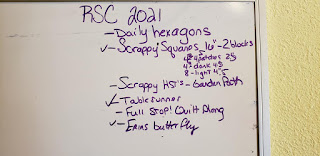 RSC 2021
- Daily hexagons
✓- Scrappy Squares 16" - 2 blocks
4 - dark 4.5
8 - light 4.5
- Scrappy HST's - Garden Path
✓ Table runner
- Full Stop! Quilt Along
✓- Erins butterfly